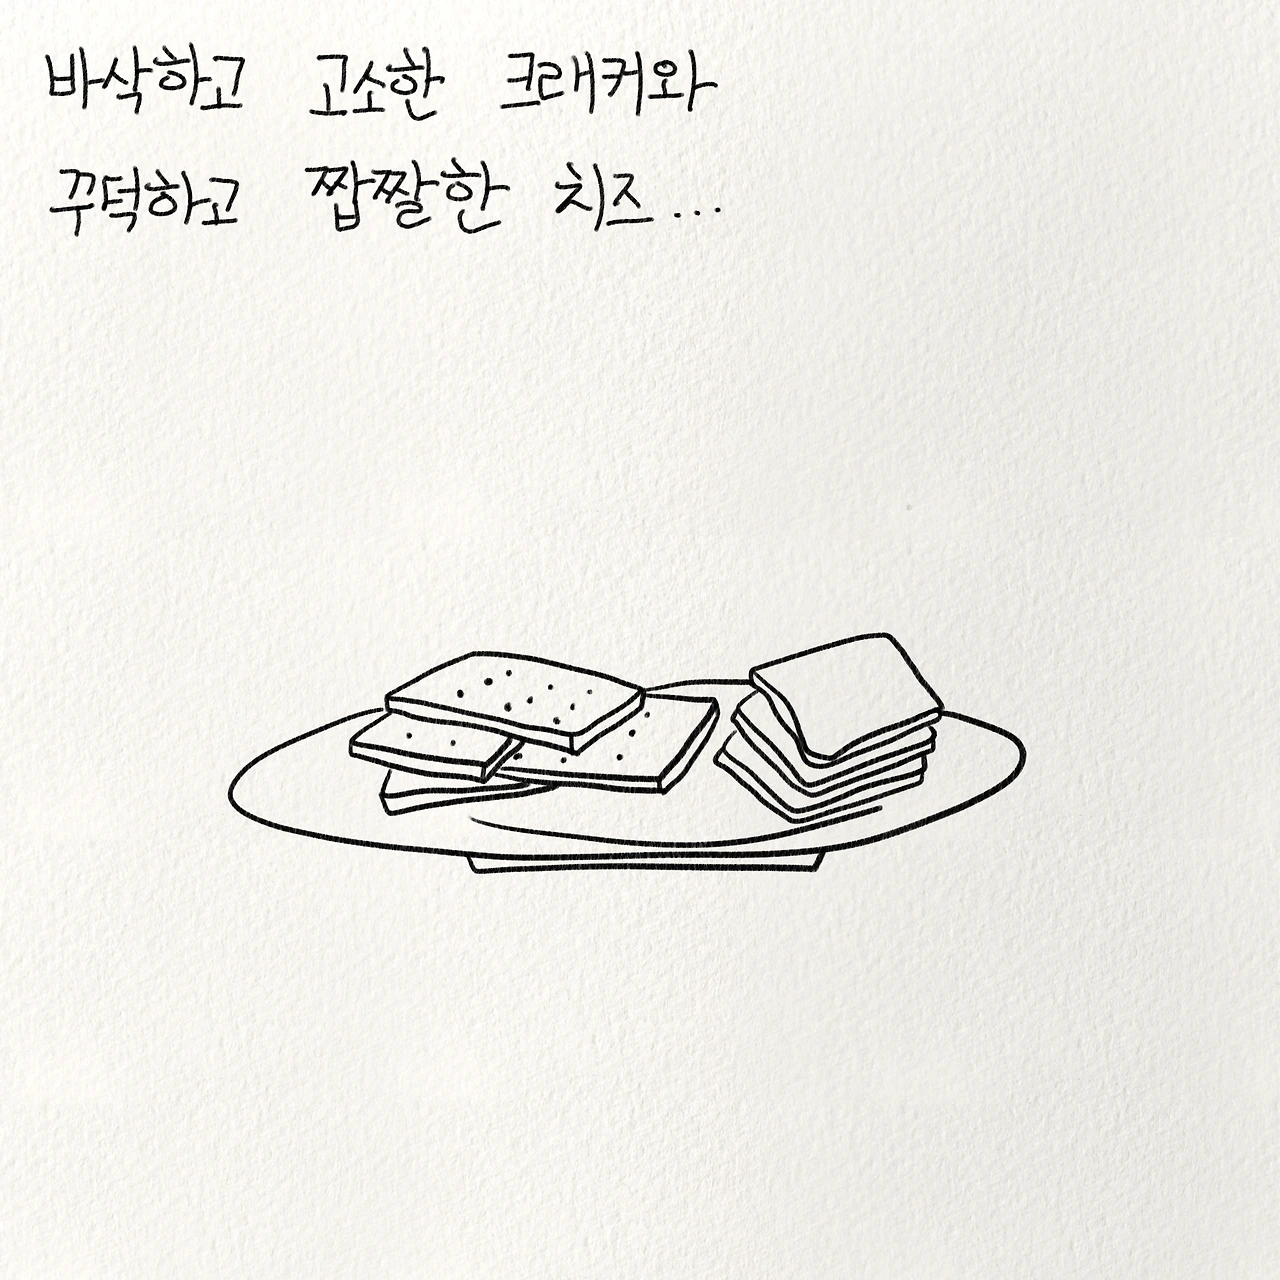 바삭하고 고소한 크래커와
꾸덕하고 짭짤한 치즈...